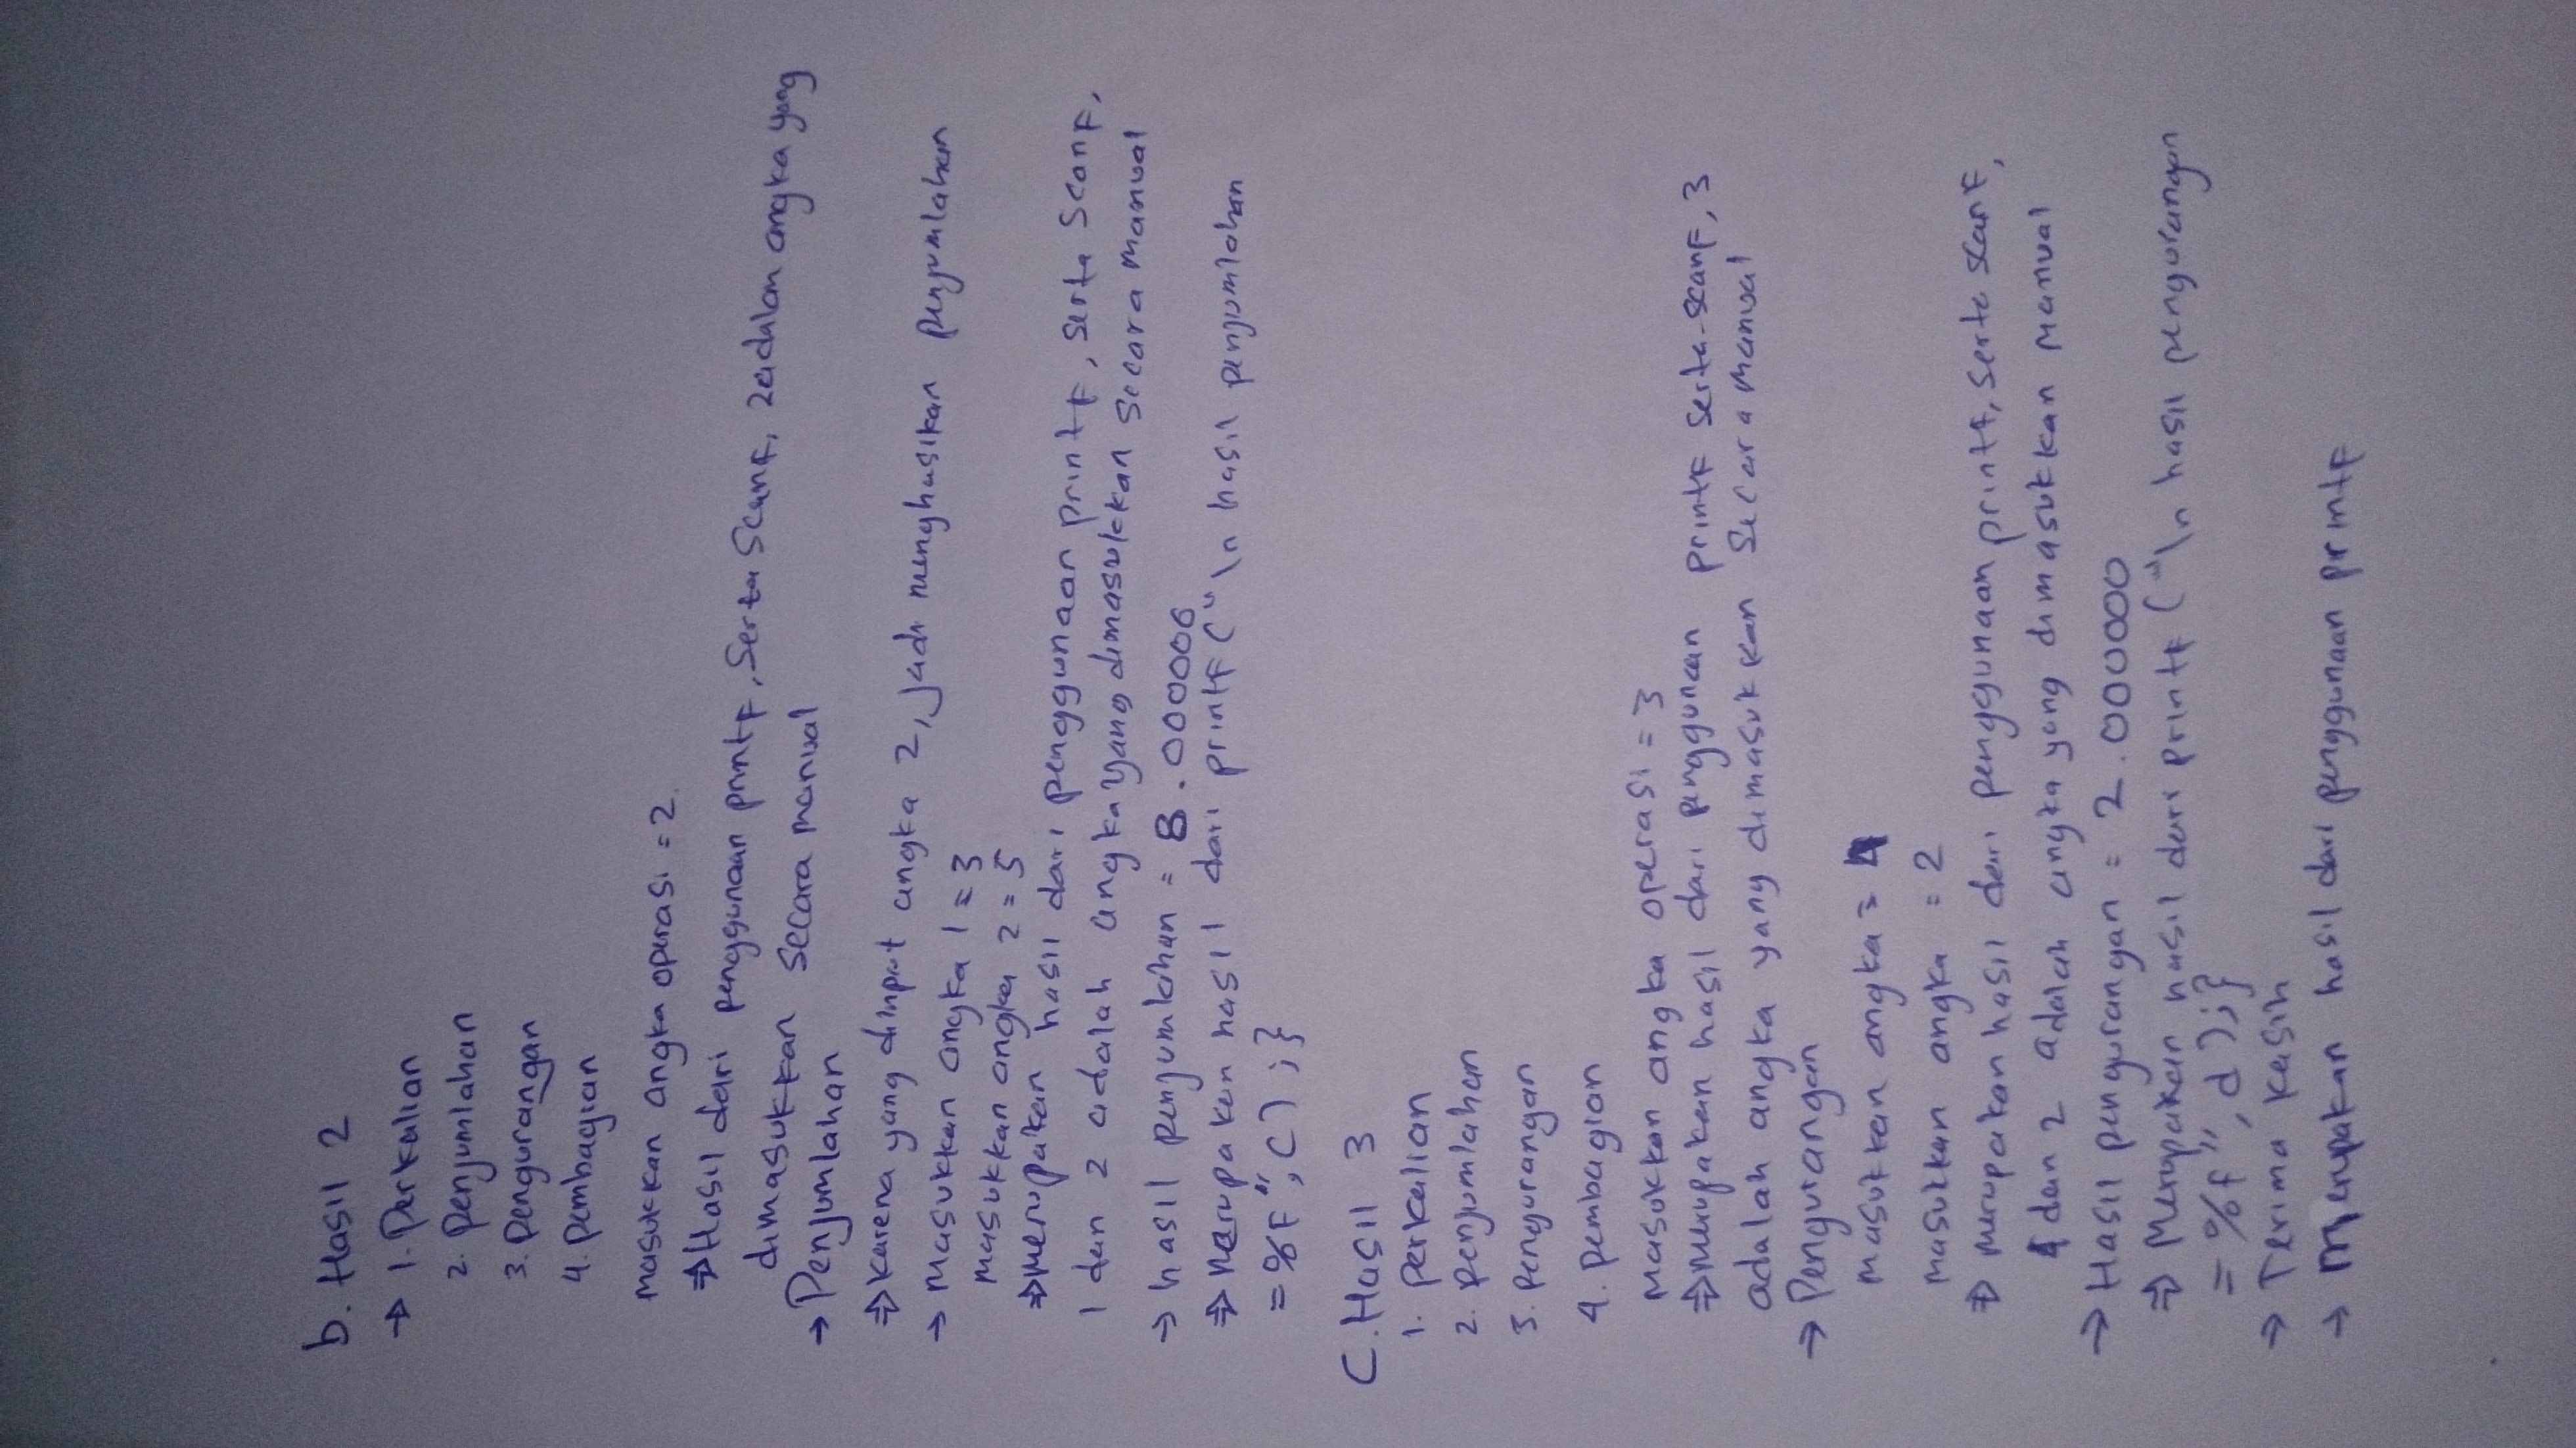 b. Hasil 2
→ 1. Perkalian
2. Penjumlahan
3. Pengurangan
4. Pembagian
Masukkan angka operasi = 2.
⇒ Hasil dari penggunaan printf, Serta Scanf, 2 adalah angka yang
dimasukkan secara manual
→ Penjumlahan
⇒ Karena yang diinput angka 2, jadi menghasikan penjumlahan
→ Masukkan angka 1 = 3
Masukkan angka 2 = 5
⇒ Merupakan hasil dari penggunaan printf, serta Scanf,
1 dan 2 adalah angka yang dimasukkan secara manual
→ hasil penjumlahan = 8.000000
⇒ Merupakan hasil dari printf ("\n hasil penjumlahan
= %f", c) ; }
C. Hasil 3
1. perkalian
2. penjumlahan
3. Pengurangan
4. pembagian
Masukkan angka operasi = 3
⇒ Merupakan hasil dari penggunaan printf serta scanf, 3
adalah angka yang dimasukkan Secara Manual
→ Pengurangan
Masukkan angka = 4
Masukkan angka = 2
⇒ Merupakan hasil dari penggunaan printf, serta scanf,
4 dan 2 adalah angka yang dimasukkan Manual
→ Hasil pengurangan = 2.000000
⇒ Merupakan hasil dari printf ("\n hasil pengurangan
= %f", d ); }
→ Terima kasih
→ Merupakan hasil dari penggunaan printf